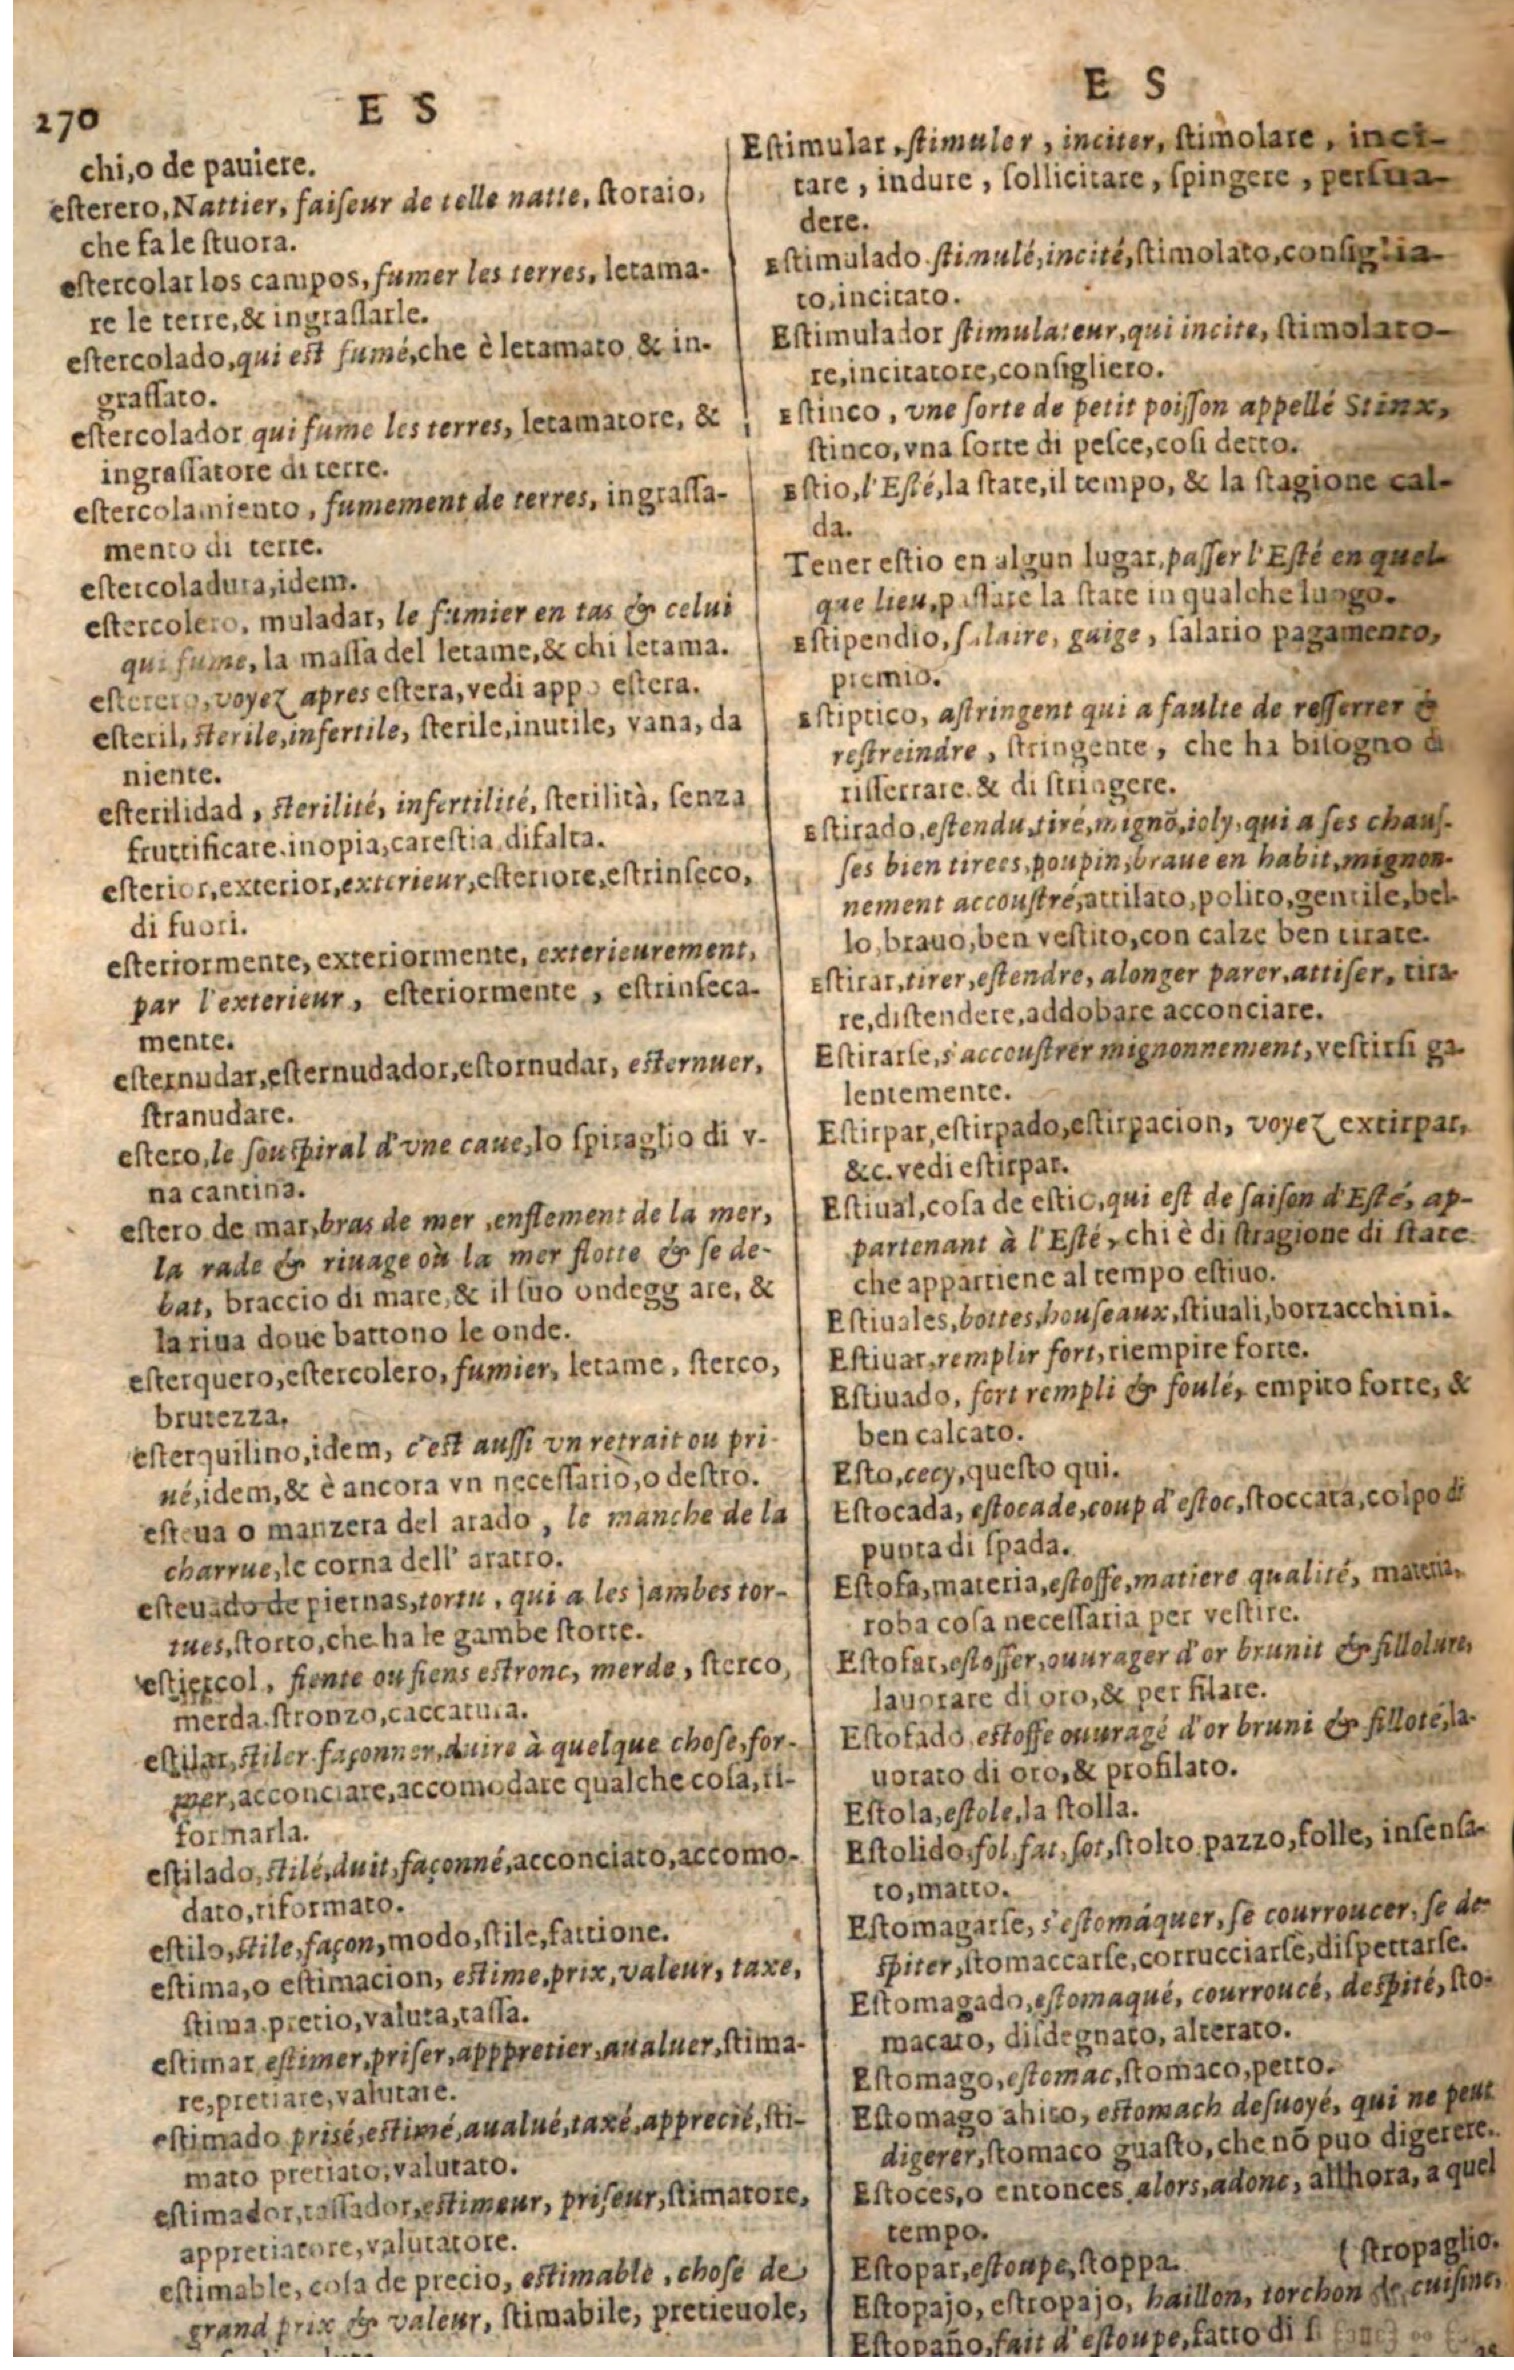 270
E S
chi,o de pauiere.
esterero, Nattier, faiſeur de telle natte, ſtoraio,
che fa le ſtuora.
eſtercolar los campos, fumer les terres, letama-
re le terre,& ingraſſarle.
eſtercolado, qui est fumé, che è letamato & in-
graſſato.
eſtercolador qui fume les terres, letamatore, &
ingraſſatore di terre.
eſtercolamiento, fumement de terres, ingraſſa-
mento di terre.
eſtercoladura, idem.
eſtercolero, muladar, le fumier en tas & celui
qui fume, la maſſa del letame,& chi letama.
eſterero, voyez apres eſtera, vedi appo eſtera.
eſteril, sterile, infertile, ſterile, inutile, vana, da
niente.
eſterilidad, sterilité, infertilité, ſterilità, ſenza
fruttificare. inopia, careſtia difalta.
eſterior, exterior, exterieur, eſteriore, eſtrinſeco,
di fuori.
eſteriormente, exteriormente, exterieurement,
par l'exterieur, eſteriormente, eſtrinſeca-
mente.
eſternudar, eſternudador, eſtornudar, esternuer,
ſtranudare.
eſtero, le ſouſpiral d'vne caue, lo ſpiraglio di v-
na cantina.
eſtero de mar, bras de mer, enflement de la mer,
la rade & riuage où la mer flotte & ſe de-
bat, braccio di mare,& il ſuo ondegg are, &
la riua doue battono le onde.
eſterquero, eſtercolero, fumier, letame, ſterco,
brutezza.
eſterquilino, idem, c'est auſſi vn retrait ou pri-
ué, idem,& è ancora vn neceſſario, o deſtro.
eſteua o manzera del arado, le manche de la
charrue, le corna dell' aratro.
eſteuado de piernas, tortu, qui a les jambes tor-
tues, ſtorto, che ha le gambe ſtorte.
eſtiercol, fiente ou fiens estronc, merde, ſterco,
merda. ſtronzo, caccatura.
eſtilar, stiler. façonner, duire à quelque choſe, for-
mer, acconciare, accomodare qualche coſa, ri-
formarla.
eſtilado, stilé, duit, façonné, acconciato, accomo-
dato, riformato.
eſtilo, stile, façon, modo, ſtile, fattione.
eſtima, o eſtimacion, estime, prix, valeur, taxe,
ſtima. pretio, valuta, taſſa.
eſtimar estimer, priſer, apppretier, aualuer, ſtima-
re, pretiare, valutare.
eſtimado prisé, estimé, aualué, taxé, apprecié, ſti-
mato pretiato, valutato.
eſtimador, taſſador, estimeur, priſeur, ſtimatore,
appretiatore, valutatore.
eſtimable, coſa de precio, estimable, choſe de
grand prix & valeur, ſtimabile, pretieuole,
E S
Eſtimular, ſtimuler, inciter, ſtimolare, inci-
tare, indure, ſollicitare, ſpingere, perſua-
dere.
Eſtimulado ſtimulé, incité, ſtimolato, conſiglia-
to, incitato.
Eſtimulador ſtimulateur, qui incite, ſtimolato-
re, incitatore, conſigliero.
Eſtinco, vne ſorte de petit poiſſon appellé Stinx,
ſtinco, vna ſorte di peſce, coſi detto.
Eſtio, l'Eſté, la ſtate, il tempo, & la ſtagione cal-
da.
Tener eſtio en algun lugar, paſſer l'Eſté en quel-
que lieu, paſſare la ſtate in qualche luogo.
Eſtipendio, ſalaire, gaige, ſalario pagamento,
premio.
Eſtiptico, aſtringent qui a faulte de reſſerrer &
reſtreindre, ſtringente, che ha biſogno di
riſſerrare. & di ſtringere.
Eſtirado, eſtendu, tiré, mignõ, ioly, qui a ſes chauſ-
ſes bien tirees, poupin, braue en habit, mignon-
nement accouſtré, attilato, polito, gentile, bel-
lo, brauo, ben veſtito, con calze ben tirate.
Eſtirar, tirer, eſtendre, alonger parer, attiſer, tira-
re, diſtendere, addobare acconciare.
Eſtirarſe, s'accouſtrer mignonnement, veſtirſi ga-
lentemente.
Eſtirpar, eſtirpado, eſtirpacion, voyez extirpar,
&c. vedi eſtirpar.
Eſtiual, coſa de eſtio, qui est de ſaiſon d'Eſté, ap-
partenant à l'Eſté, chi è di ſtragione di ſtate
che appartiene al tempo eſtiuo.
Eſtiuales, bottes, houſeaux, ſtiuali, borzacchini.
Eſtiuar, remplir fort, riempire forte.
Eſtiuado, fort rempli & foulé, empito forte, &
ben calcato.
Eſto, cecy, queſto qui.
Eſtocada, eſtocade, coup d'eſtoc, ſtoccata, colpo di
punta di ſpada.
Eſtofa, materia, eſtoffe, matiere qualité, materia,
roba coſa neceſſaria per veſtire.
Eſtofar, eſtoffer, ouurager d'or brunit & fillolure,
lauorare di oro,& per filare.
Eſtofado estoffe ouuragé d'or bruni & filloté, la-
uorato di oro,& profilato.
Eſtola, eſtole, la ſtolla.
Eſtolido, fol, fat, ſot, ſtolto pazzo, folle, inſenſa-
to, matto.
Eſtomagarſe, s'eſtomáquer, ſe courroucer, ſe de-
ſpiter, ſtomaccarſe, corrucciarſe, diſpettarſe.
Eſtomagado, eſtomaqué, courroucé, deſpité, ſto-
macato, diſdegnato, alterato.
Eſtomago, eſtomac, ſtomaco, petto.
Eſtomago ahito, eſtomach deſuoyé, qui ne peut
digerer, ſtomaco guaſto, che nõ puo digerere.
Eſtoces, o entonces, alors, adonc, allhora, a quel
tempo.
Eſtopar, eſtoupe, ſtoppa. ( ſtropaglio.
Eſtopajo, eſtropajo, haillon, torchon de cuiſine,
Eſtopaño, fait d'eſtoupe, fatto di